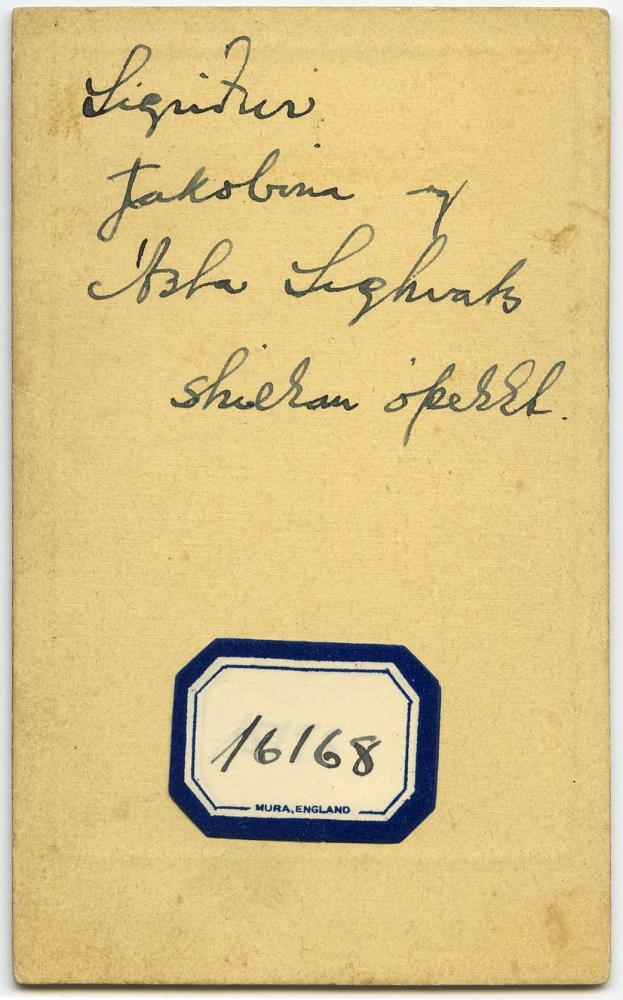 Sigriður
Jakobína og
Ásta Sighvats
stulkan óþekkt.
16168
MURA, ENGLAND